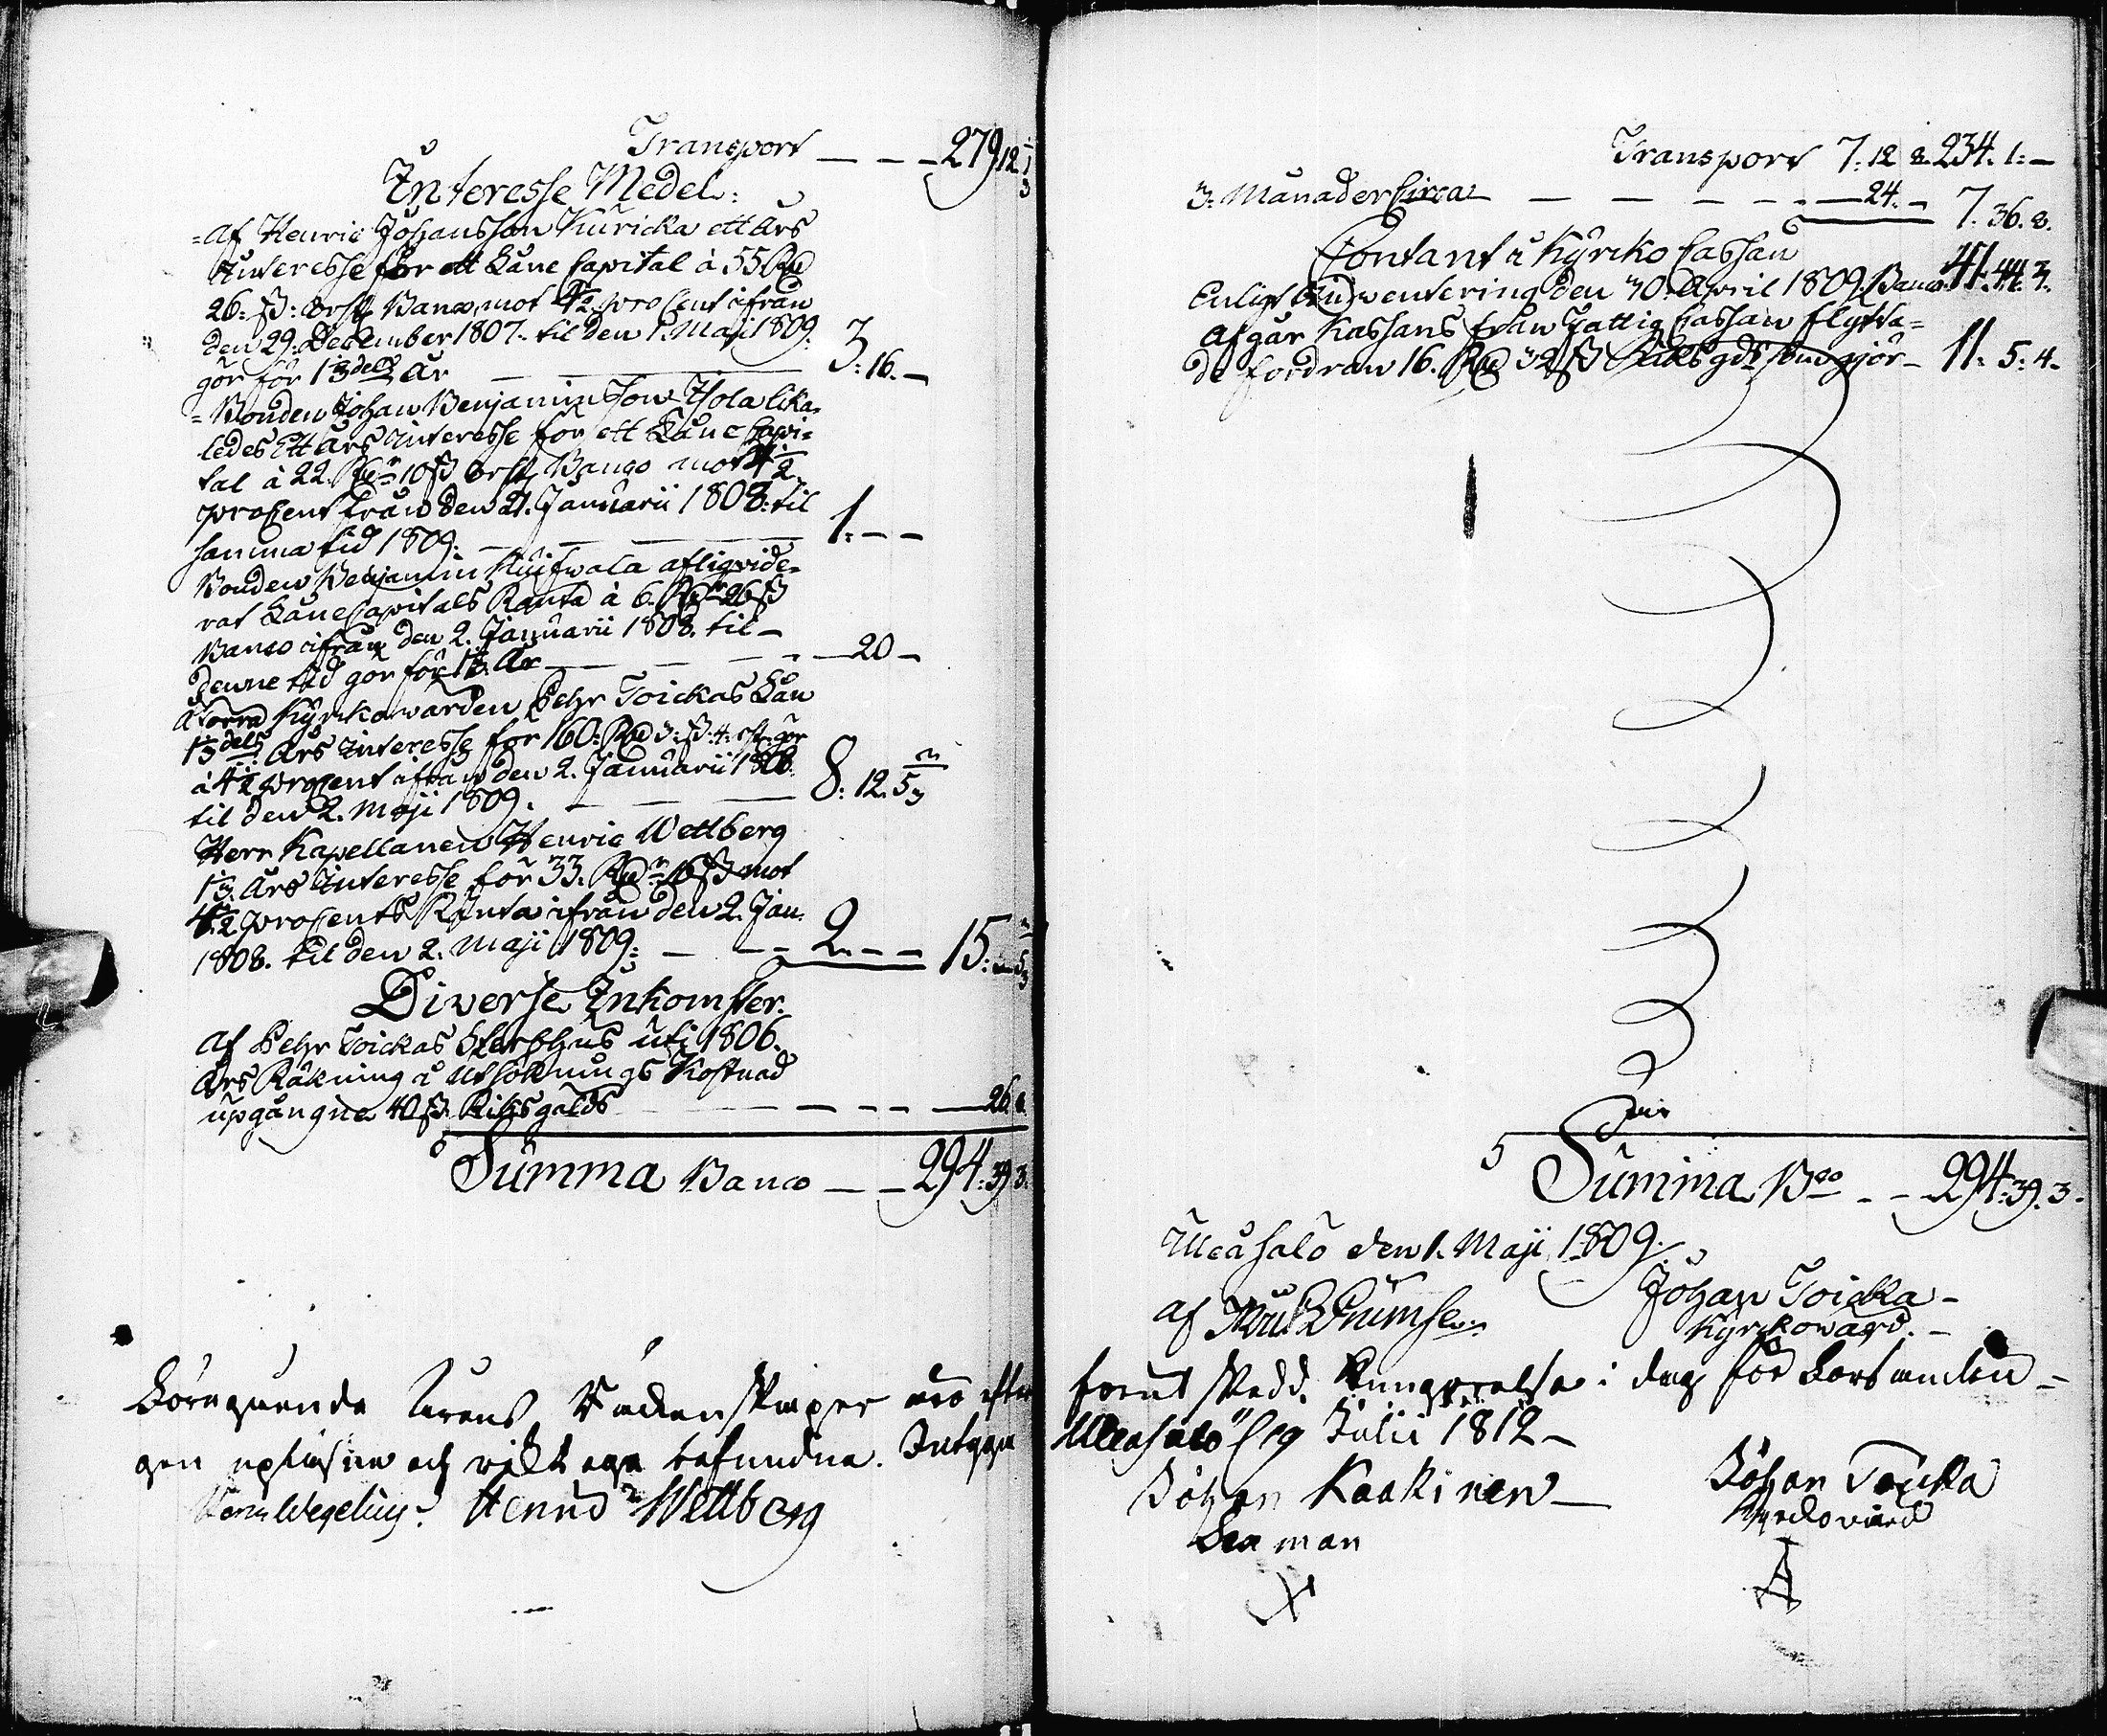 Transport — — — 279 12 1/3
Interesse Medel:
= af Henric Johansson Kuricka ett års
Interesse för ett Låne Capital à 55 Rd
26. ß: Orstr Banco, mot 4½ proCent ifrån
den 29. December 1807. til den 1. Maji 1809.
gör för 1⅓ dels År — 3: 16. —
= Bonden Johan Benjaminsson Isola lika-
ledes Ett års Interesse för ett Låne Capi=
tal à 22. Rdr 10 ß Banco mot 4½
proCent från den 21. Januarii 1808: til
samma tid 1809. — 1: — —
Bonden Benjamin afliqvide=
rat Låne Capitals Ränta à 6. Rdr 26 ß
Banco ifrån den 2. Januarii 1808. til —
denne tid gör för 1⅓ År — 20 —
å förra Kyrkowärden Pehr Toickas Lån
1⅓ dels Års Interesse för 160: Rd 3: ß: 4: gör
à 4½ proCent ifrån den 2. Januarii 1808.
til den 2. Maji 1809. — 8: 12. 5⅔
Herr Kapellanen Henric Wettberg
1⅓. Års Interesse för 33. Rdr 16 ß mot
4½ proCents Ränta ifrån den 2. Jan.
1808. til den 2. Maji 1809: — 2. — — 15: — 5⅔
Diverse Inkomster.
Af Pehr Toickas Sterbhus uti 1806.
Års Räkning i Utsöknings Kostnad
upgångne 40 ß. Riksgälds — 26. 8.
Summa Banco — — 294: 39 3.
Föregående Årens Räkenskaper äro efter
gen upläsne och riktige befundne. Intyga
Wegelius. Henric Wettberg
Transport 7: 12 8. 234. 1: —
3. Månader Circa — 24. — 7. 36. 8.
Contant i Kyrko Cassan
Enligt Inventering den 30. April 1809. Banco 41: 44. 3.
Afgår Kassans från Fattig Cassan flytta=
de fordran 16. Rd 32 ß Riksgds som gjör — 11: 5: 4.
Summa Bco — — 294: 39. 3.
Uleåsalo den 1. Maji 1809.
af Johan Toicka —
Kyrckowärd. —
förut skedd Kungörelse i dag för Församlin —
Uleåsalo d 19 Julii 1812 —
Johan Kaakinen — Johan Toicka
Kyrckoward